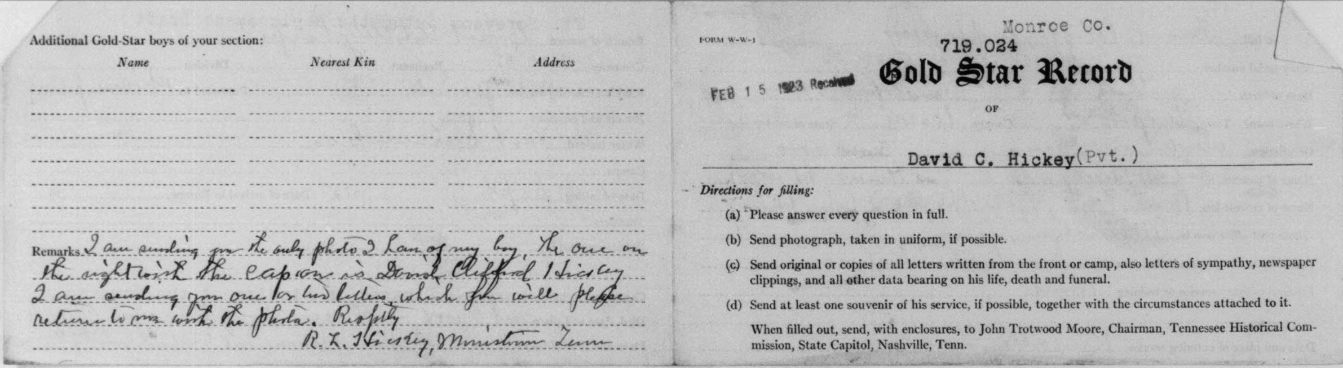 Additional Gold-Star boys of your section:
Name Nearest Kin Address
Remarks I am sending you the only photo I have of my boy, the one on
the right with the cap on is David Clifford Hickey
I am sending you one of his letters, which you will please
return to me with the photo. Resptly
R. L. Hickey, Tenn
Monroe Co.
FORM W-W-1
719.024
FEB 15 1923 Received
Gold Star Record
OF
David C. Hickey (Pvt.)
Directions for filling:
(a) Please answer every question in full.
(b) Send photograph, taken in uniform, if possible.
(c) Send original or copies of all letters written from the front or camp, also letters of sympathy, newspaper
clippings, and all other data bearing on his life, death and funeral.
(d) Send at least one souvenir of his service, if possible, together with the circumstances attached to it.
When filled out, send, with enclosures, to John Trotwood Moore, Chairman, Tennessee Historical Com-
mission, State Capitol, Nashville, Tenn.